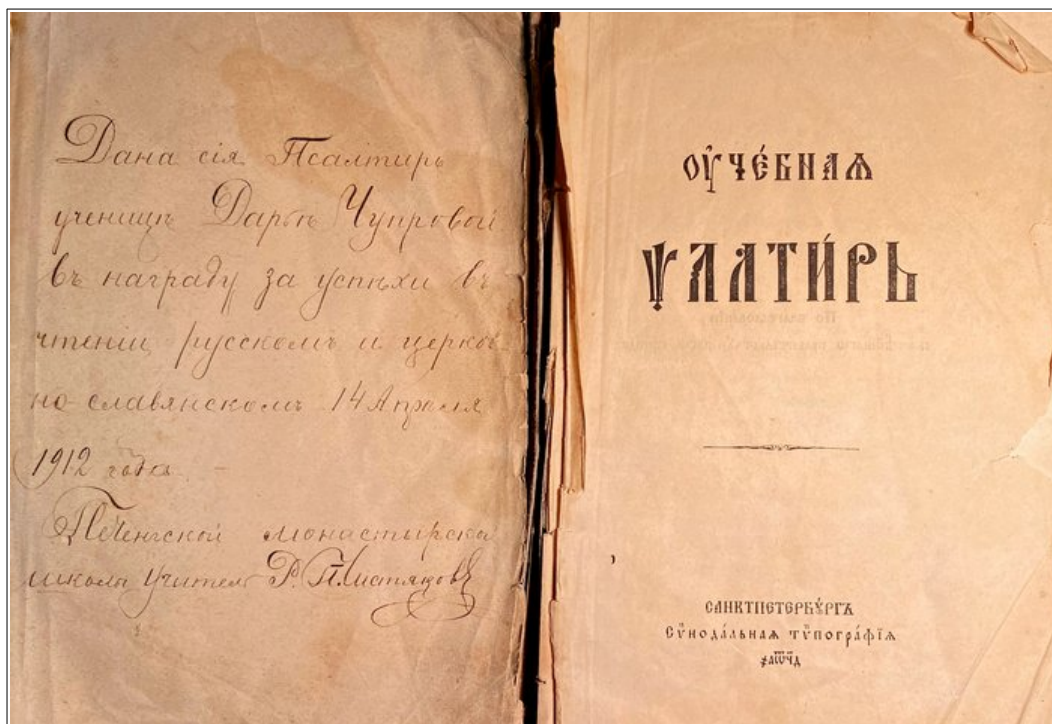 Дана сія Псалтирь
ученицѣ Дарьѣ Чупровой
въ награду за успѣхи въ
чтеніи русскомъ и церков
но славянскомъ 14 Апреля
1912 года
Печенгской монастырской
школы Учитель
Оу҆че́бнаѧ
ѱалти́рь
Санктпетербꙋ́ргъ
Сѵ҆нода́льнаѧ тѵ҆погра́фїѧ